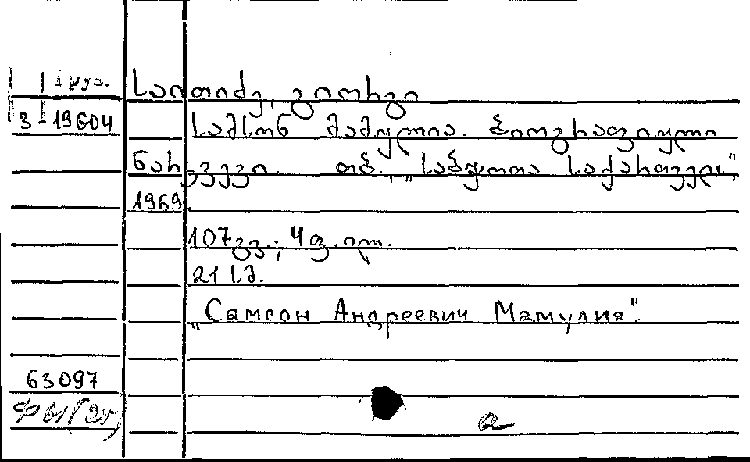 Груз.
საითიძე, გიორგი
3-19604
სამსონ მამულია. ბიოგრაფიული
ნარკვევი. თბ., "საბჭოთა საქართველო",
1969
107გვ.; 4ფ.ილ.
21 ს.მ.
"Самсон Андреевич Мамулия".
63097
a